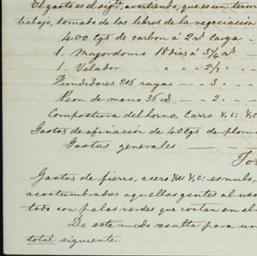 El gasto es el sigte advertiendo, que es un term
trabajo, tomado de los libros de la negociación
400 cgs de carbón á 2 rs carga
1. Mayordomo 18 dias á 5/4 rs
1. Velador " " " 2/2 "
Fundidores 216 rayas — " 3 "
Peon de mano 36 id. — " 2 "
Compostura del horno, barro &c: &c:
Gastos de afinacion de 40 cgs de plomo
Gastos generales
To
Gastos de fierro, acero, &c: es nulo,
acostumbrados aquellas gentes al uso
todo con palas verdes que cortan en el
De este modo resulta para un
total siguiente.